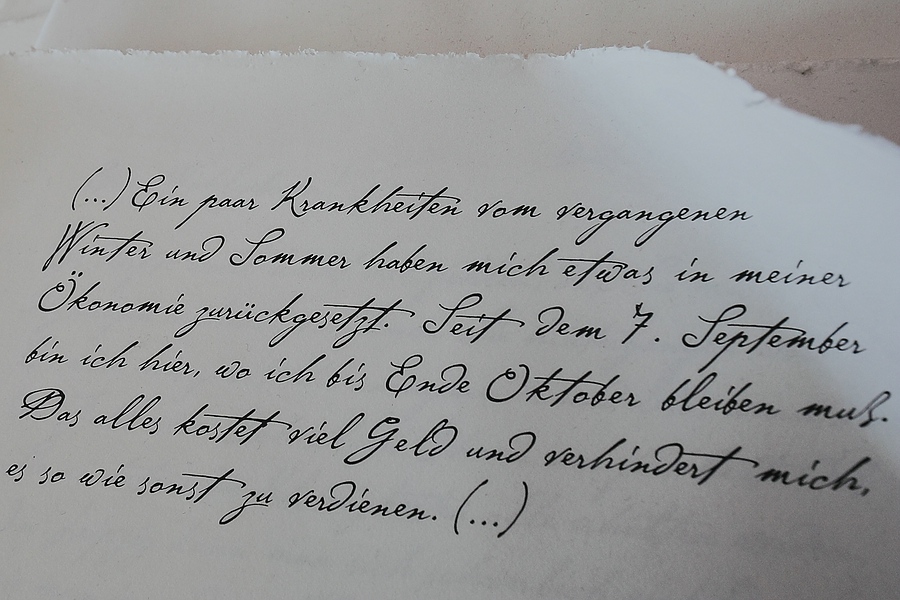 (...) Ein paar Krankheiten vom vergangenen
Winter und Sommer haben mich etwas in meiner
Ökonomie zurückgesetzt. Seit dem 7. September
bin ich hier, wo ich bis Ende Oktober bleiben muß.
Das alles kostet viel Geld und verhindert mich,
es so wie sonst zu verdienen. (...)